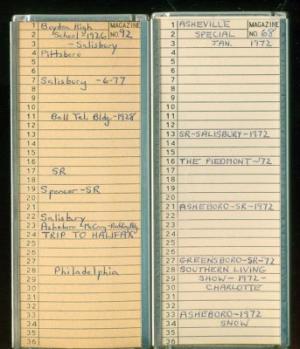 MAGAZINE
NO. 92
1 Boyden High
2 School - 1926
3 - Salisbury
4 Pittsboro
5
6
7 Salisbury - 6-77
8
9
10
11 Bell Tel. Bldg - 1928
12
13
14
15
16
17 SR
18
19 Spencer - SR
20
21
22 Salisbury
23 Asheboro - McCrary
24 TRIP TO HALIFAX
25
26
27
28 Philadelphia
29
30
31
32
33
34
35
36
MAGAZINE
NO. 68
1 ASHEVILLE
2 SPECIAL
3 JAN. 1972
4
5
6
7
8
9
10
11
12
13 SR-SALISBURY-1972
14
15
16 THE PIEDMONT-'72
17
18
19
20
21 ASHEBORO-SR-1972
22
23
24
25
26
27 GREENSBORO-SR-'72
28 SOUTHERN LIVING
29 SHOW - 1972 -
30 CHARLOTTE
31
32
33 ASHEBORO-1972
34 SNOW
35
36